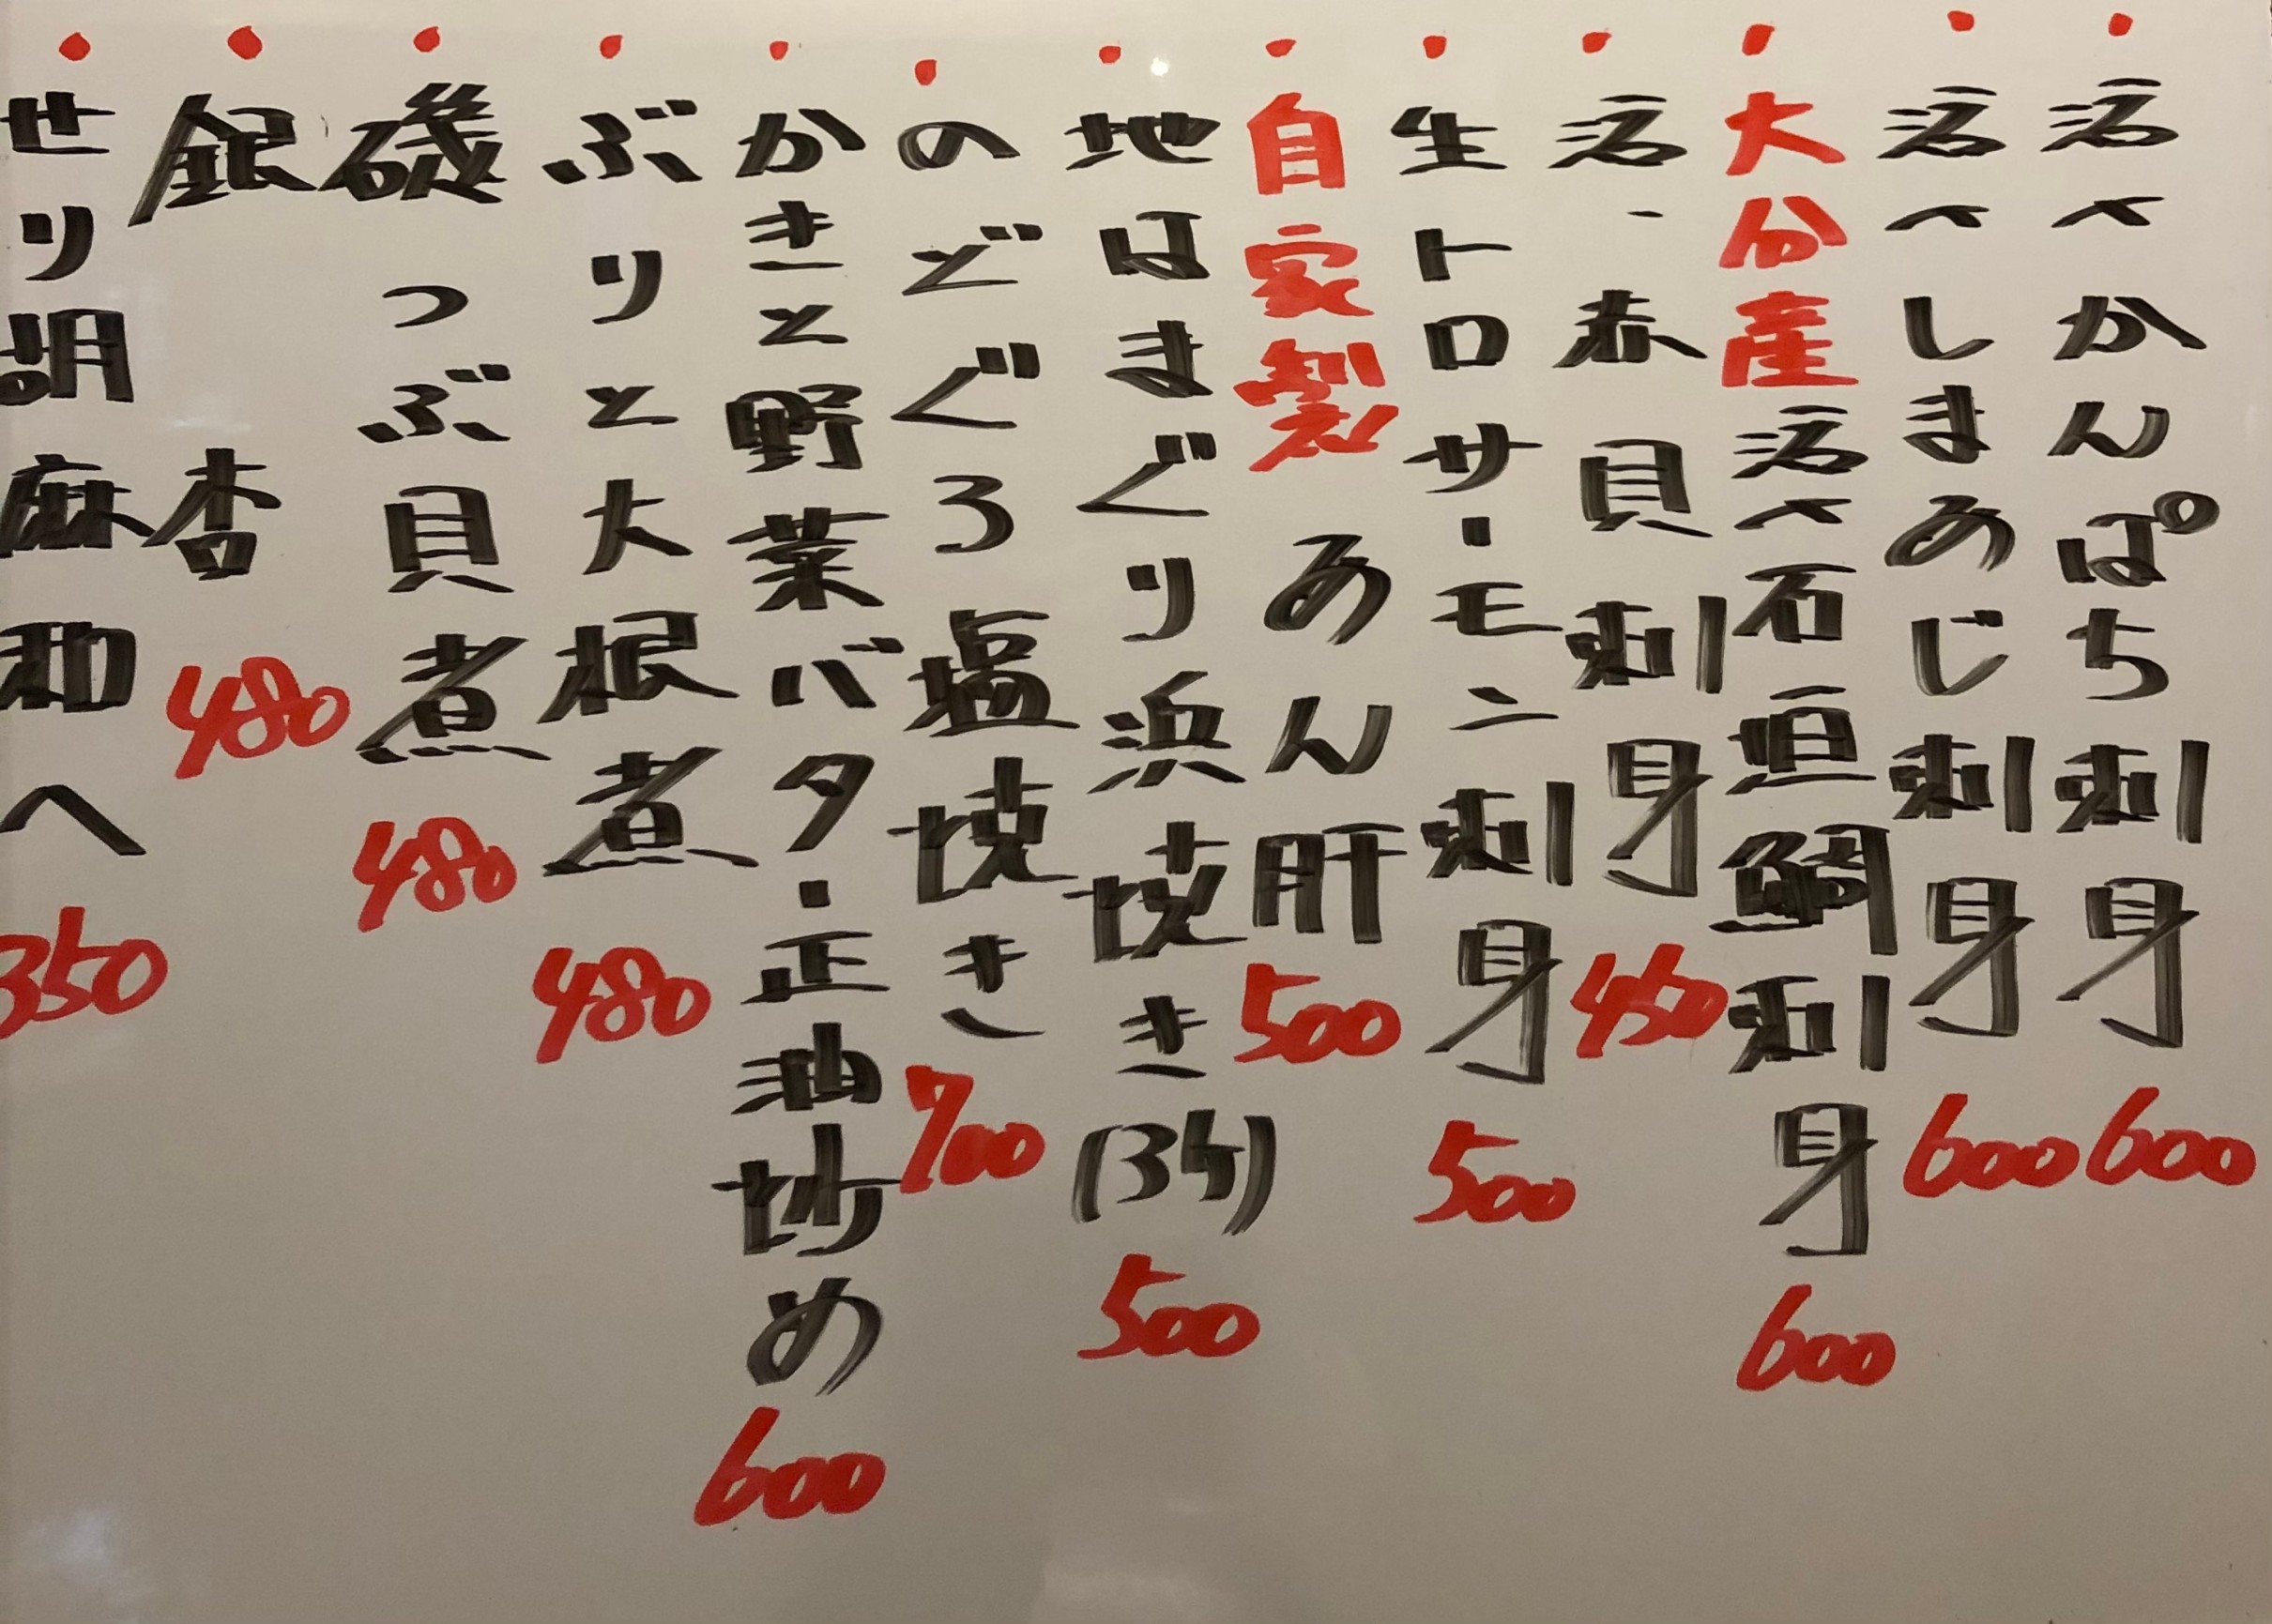 活〆かんぱち刺身 600
活〆しまあじ刺身 600
大分産活〆石垣鯛刺身 600
活・赤貝刺身 450
生トロサーモン刺身 500
自家製あん肝 500
地はまぐり浜焼き(3ケ) 500
のどぐろ塩焼き 700
かきと野菜バター正油炒め 600
ぶりと大根煮 480
磯つぶ貝煮 480
銀杏 480
せり胡麻和へ 350